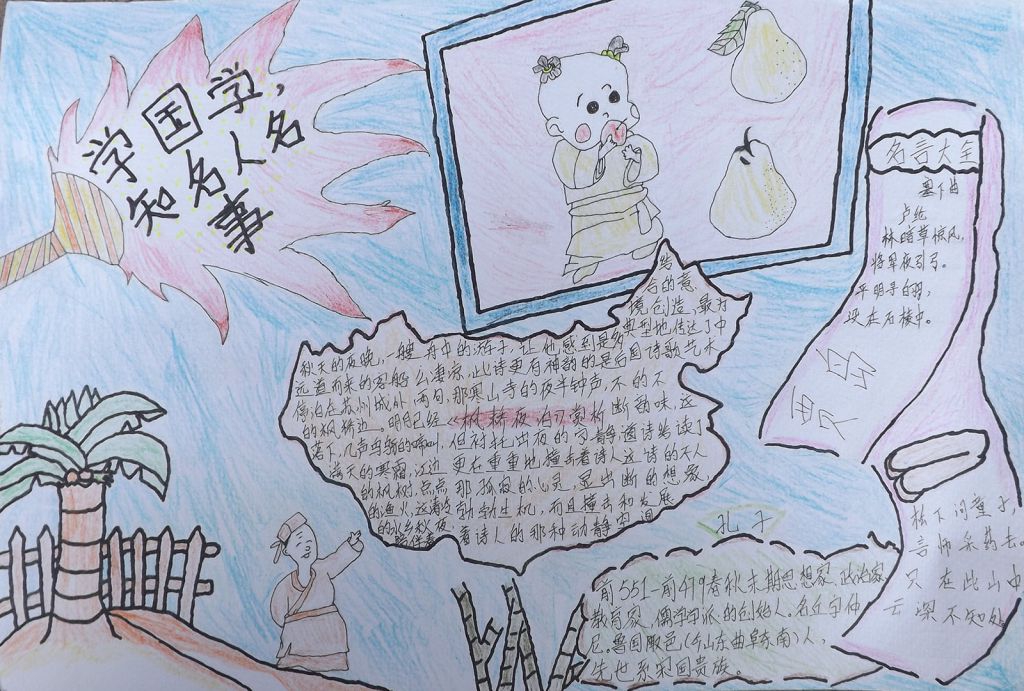 学国学,
知名人名
事
名言大全
塞下曲
卢纶
林暗草惊风,
将军夜引弓。
平明寻白羽,
没在石棱中。
结
合的意
境创造,最为
典型地传达了中
秋天的夜晚,一艘
远道而来的客船
停泊在苏州城外
的枫桥边。明月已经
落下,几声乌鸦的啼叫,
满天的寒霜,江边
的枫树,点点
的渔火,
舟中的游子,让他感到是多
么凄凉,此诗更有神韵的是后
两句,那寒山寺的夜半钟声,不
但衬托出夜的
更在重重地撞击着诗人
那孤寂的心灵,显出
勃勃生机,而且撞击
着诗人的那种动静
国诗歌艺术
的不
《枫桥夜泊》赏析
断韵味,这
遍诗
这诗的不
断的想象,
和发展
空间
孔子
前551-前479春秋末期思想家、政治家
教育家,儒学学派的创始人。名丘字仲
尼。鲁国陬邑(今山东曲阜东南)人,
先世系宋国贵族。
松下问童子,
言师采药去。
只在此山中
云深不知处